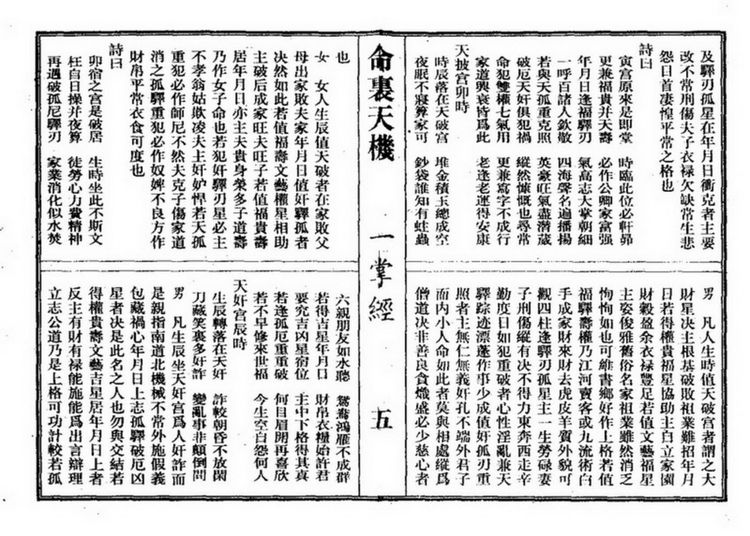 及驛刃孤星在年月日衝克者主要
改不常刑傷夫子衣祿欠缺常生悲
怨日首淒惶平常之格也
詩曰
寅宮原來是即堂 時臨此位必軒昂
更兼福貴并天壽 必作公卿家富强
年月日逢福驛刃 氣高志大掌朝細
一呼百諸人欽敬 四海聲名遍播揚
若與天孤重克照 英豪旺氣盡潛藏
破厄天奸俱犯禍 縱然慷慨也尋常
命犯雙權七氣用 更兼寫字不成行
家道興衰皆爲此 老逢老運得安康
天披宮卯時
時辰落在天破宮 堆金積玉總成空
夜眠不寢算家可 鈔袋誰知有蛀蟲
男 凡人生時值天破宮者謂之大
財星決主根基破敗祖業難招年月
日若得權貴星福星協助主白立家園
財穀盈余衣祿豐足若值文藝福星
主姿俊雅舊俗名家祖業雖然消乏
恂恂如也可維書鄉好作上格若值
福驛壽權乃江河賣客或九流術白
手成家財來財去虎皮羊質外貌可
觀四柱逢驛刃孤星主一生勞碌妻
子刑傷縱有決不得力東奔西走辛
勤度日如犯重破者心性淫亂兼天
驛踪迹漂蓬作事少成值奸孤刃重
照者主無仁無義奸孔不端外君子
而内小人命如此者莫與相處縱爲
僧道決非善良貪熾盛必少慈心者
命裏天機 一掌經 五
也
女 女人生辰值天破者在家敗父
母出家敗夫家年月日值奸驛孤者
決然如此若值福壽文藝權星相助
主破后成家旺夫旺子若值福貴壽
居年月日亦主夫貴身榮多子道壽
乃作女子命也若犯奸驛刃星必主
不孝翁姑欺凌夫主奸妒悍若天孤
重犯必作師尼不然夫克子傷家道
消之孤驛重犯必作奴婢不良方作
財帛平常衣食可度也
詩曰
卯宿之宮是破居 生時坐此不斯文
枉自日操并夜算 徒勞心力費精神
再遇破孤尼驛刃 家業消化似水焚
六親朋友如水聽 鴛鴦鴻雁不成群
若得吉星年月日 財帛衣糧始許君
要究吉凶星宿位 主中下格得其真
若逢孤厄重重破 何目眉開再喜欣
若不早修來世福 今生空白怨何人
天奸宮辰時
生辰轉落在天奸 詐較朝昏不放閑
刀藏笑裏多奸詐 變亂事非顛倒問
男 凡生辰坐天奸宮爲人奸詐而
是親指南道北機械不常外施假義
包藏禍心年月日上忐孤驛破厄凶
星者決是此名之人也勿與交結若
得權貴壽文藝吉星居年月日上者
反主有財有禄能施能爲出言辯理
立志公道乃是上格可功計較若孤